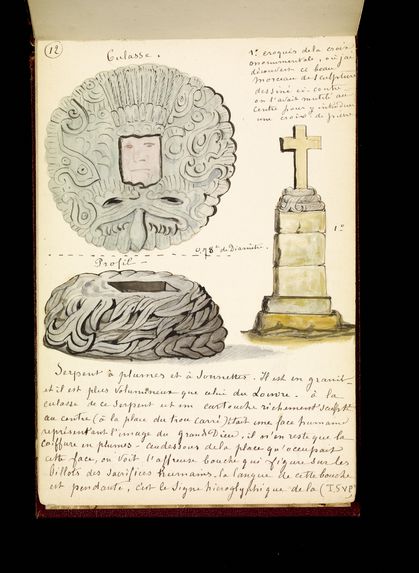 12
Culasse.
1° croquis de la croix
monumentale, où j'ai
découvert ce beau
morceau de sculpture
dessiné ci-contre
on l'avait mutilé au
centre pour y introduire
une croix de pierre
1°
0,98 de Diamètre.
Profil
Serpent à plumes et à Sonnettes. Il est en granit
et il est plus volumineux que celui du Louvre. à la
culasse de ce Serpent est un cartouche richement sculpté
au centre (à la place du trou carré) était une face humaine
représentant l'image du Grand Dieu, il n'en reste que la
coiffure en plumes - au dessous de la place qu'occupait
cette face, on voit l'affreuse bouche qui figure sur les
billots des Sacrifices humains. la langue de cette bouche
est pendante, c'est le Signe hiéroglyphique de la (T.S.V.P.